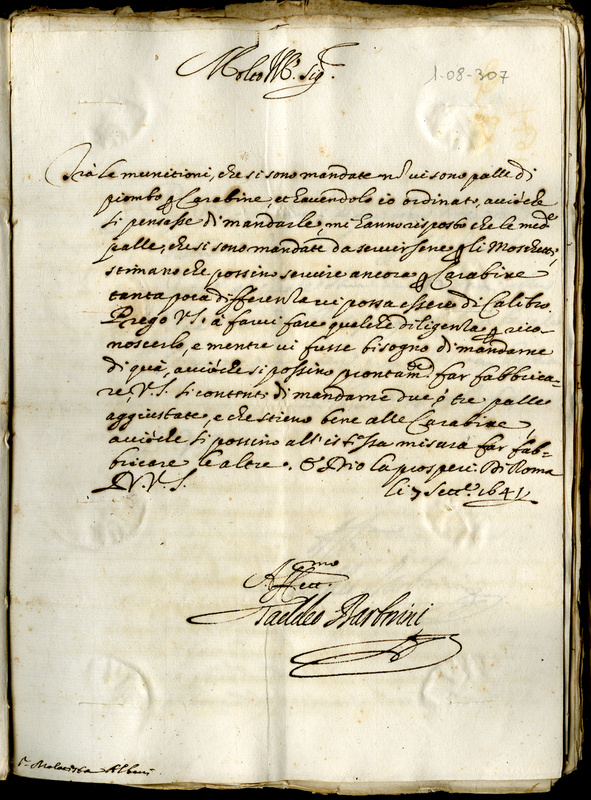 Molto Ill.re Sig.re
1-08-307
Trà le munitioni, che si sono mandate nō vi sono palle di
piombo p Carabine, et havendolo io ordinato, acciòche
si pensasse di mandarle, mi hanno risposto che le med.e
palle, che si sono mandate da servirsene p li Moschetti,
stimano che possino servire ancora p Carabine
tanta poca differenza vi possa essere di Calibro.
Prego V.S. à farvi fare qualche diligenza p rico-
noscerlo, e mentre vi fusse bisogno di mandarne
di quà, acciòche si possino prontam.te far fabbrica-
re, V.S. si contenti di mandarne due ò tre palle
aggiustate, e che stieno bene alle Carabine,
acciòche si possino all' istessa misura far fab-
bricare le altre. E Dio la prosperi. Di Roma
li 7 Sett.e 1641
D V.S.
Aff.mo
Taddeo Barberini
S.r Malatesta Albani